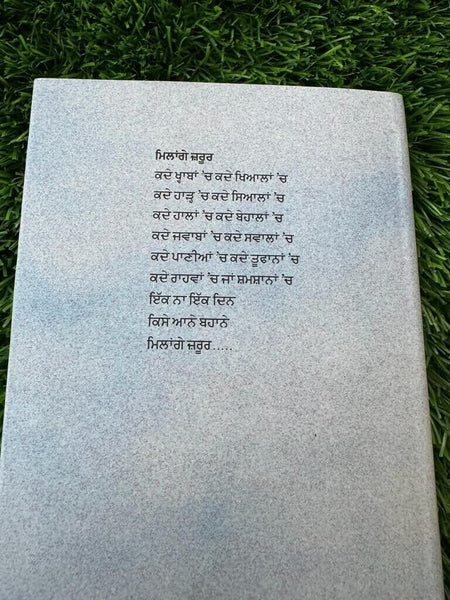 ਮਿਲਾਂਗੇ ਜ਼ਰੂਰ
ਕਦੇ ਖ਼੍ਵਾਬਾਂ 'ਚ ਕਦੇ ਖਿਆਲਾਂ 'ਚ
ਕਦੇ ਹਾੜ੍ਹ 'ਚ ਕਦੇ ਸਿਆਲਾਂ 'ਚ
ਕਦੇ ਹਾਲਾਂ 'ਚ ਕਦੇ ਬੇਹਾਲਾਂ 'ਚ
ਕਦੇ ਜਵਾਬਾਂ 'ਚ ਕਦੇ ਸਵਾਲਾਂ 'ਚ
ਕਦੇ ਪਾਣੀਆਂ 'ਚ ਕਦੇ ਤੂਫਾਨਾਂ 'ਚ
ਕਦੇ ਰਾਹਵਾਂ 'ਚ ਜਾਂ ਸ਼ਮਸ਼ਾਨਾਂ 'ਚ
ਇੱਕ ਨਾ ਇੱਕ ਦਿਨ
ਕਿਸੇ ਆਨੇ ਬਹਾਨੇ
ਮਿਲਾਂਗੇ ਜ਼ਰੂਰ.....